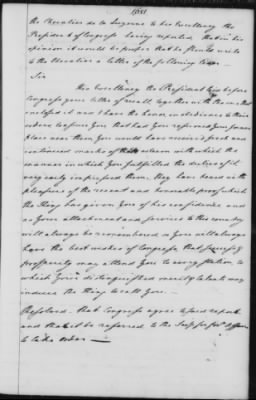 the Chevalier de la Luzerne to his Excellency the
President of Congress having reported that in his
opinion it would be proper that he should write
to the Chevalier a letter of the following tenor
Sir
His Excellency the President laid before
Congress your letter of recall, together with the
enclosed it and I have the honor in obedience to their
orders to assure you that had you
place near them, you would have received fresh and
continued marks of their esteem with which the
manner in which you fulfilled the duties of it
very early impressed them, they have heard with
pleasure of the recent and honorable proof which
the King has given you of his confidence and
as your attachment and services to this country
will always be remembered so you will always
have the best wishes of Congress, that success &
prosperity may attend you in every station, to
which your distinguished merit & talents may
induce the King to call you.
Resolved. that Congress agree to said report
and that it be referred to the
to take order